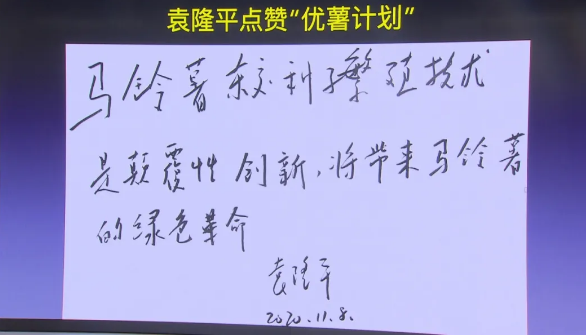 袁隆平点赞“优薯计划”
马铃薯杂交种子繁殖技术
是颠覆性创新，将带来马铃薯
的绿色革命
袁隆平
2020.11.8.